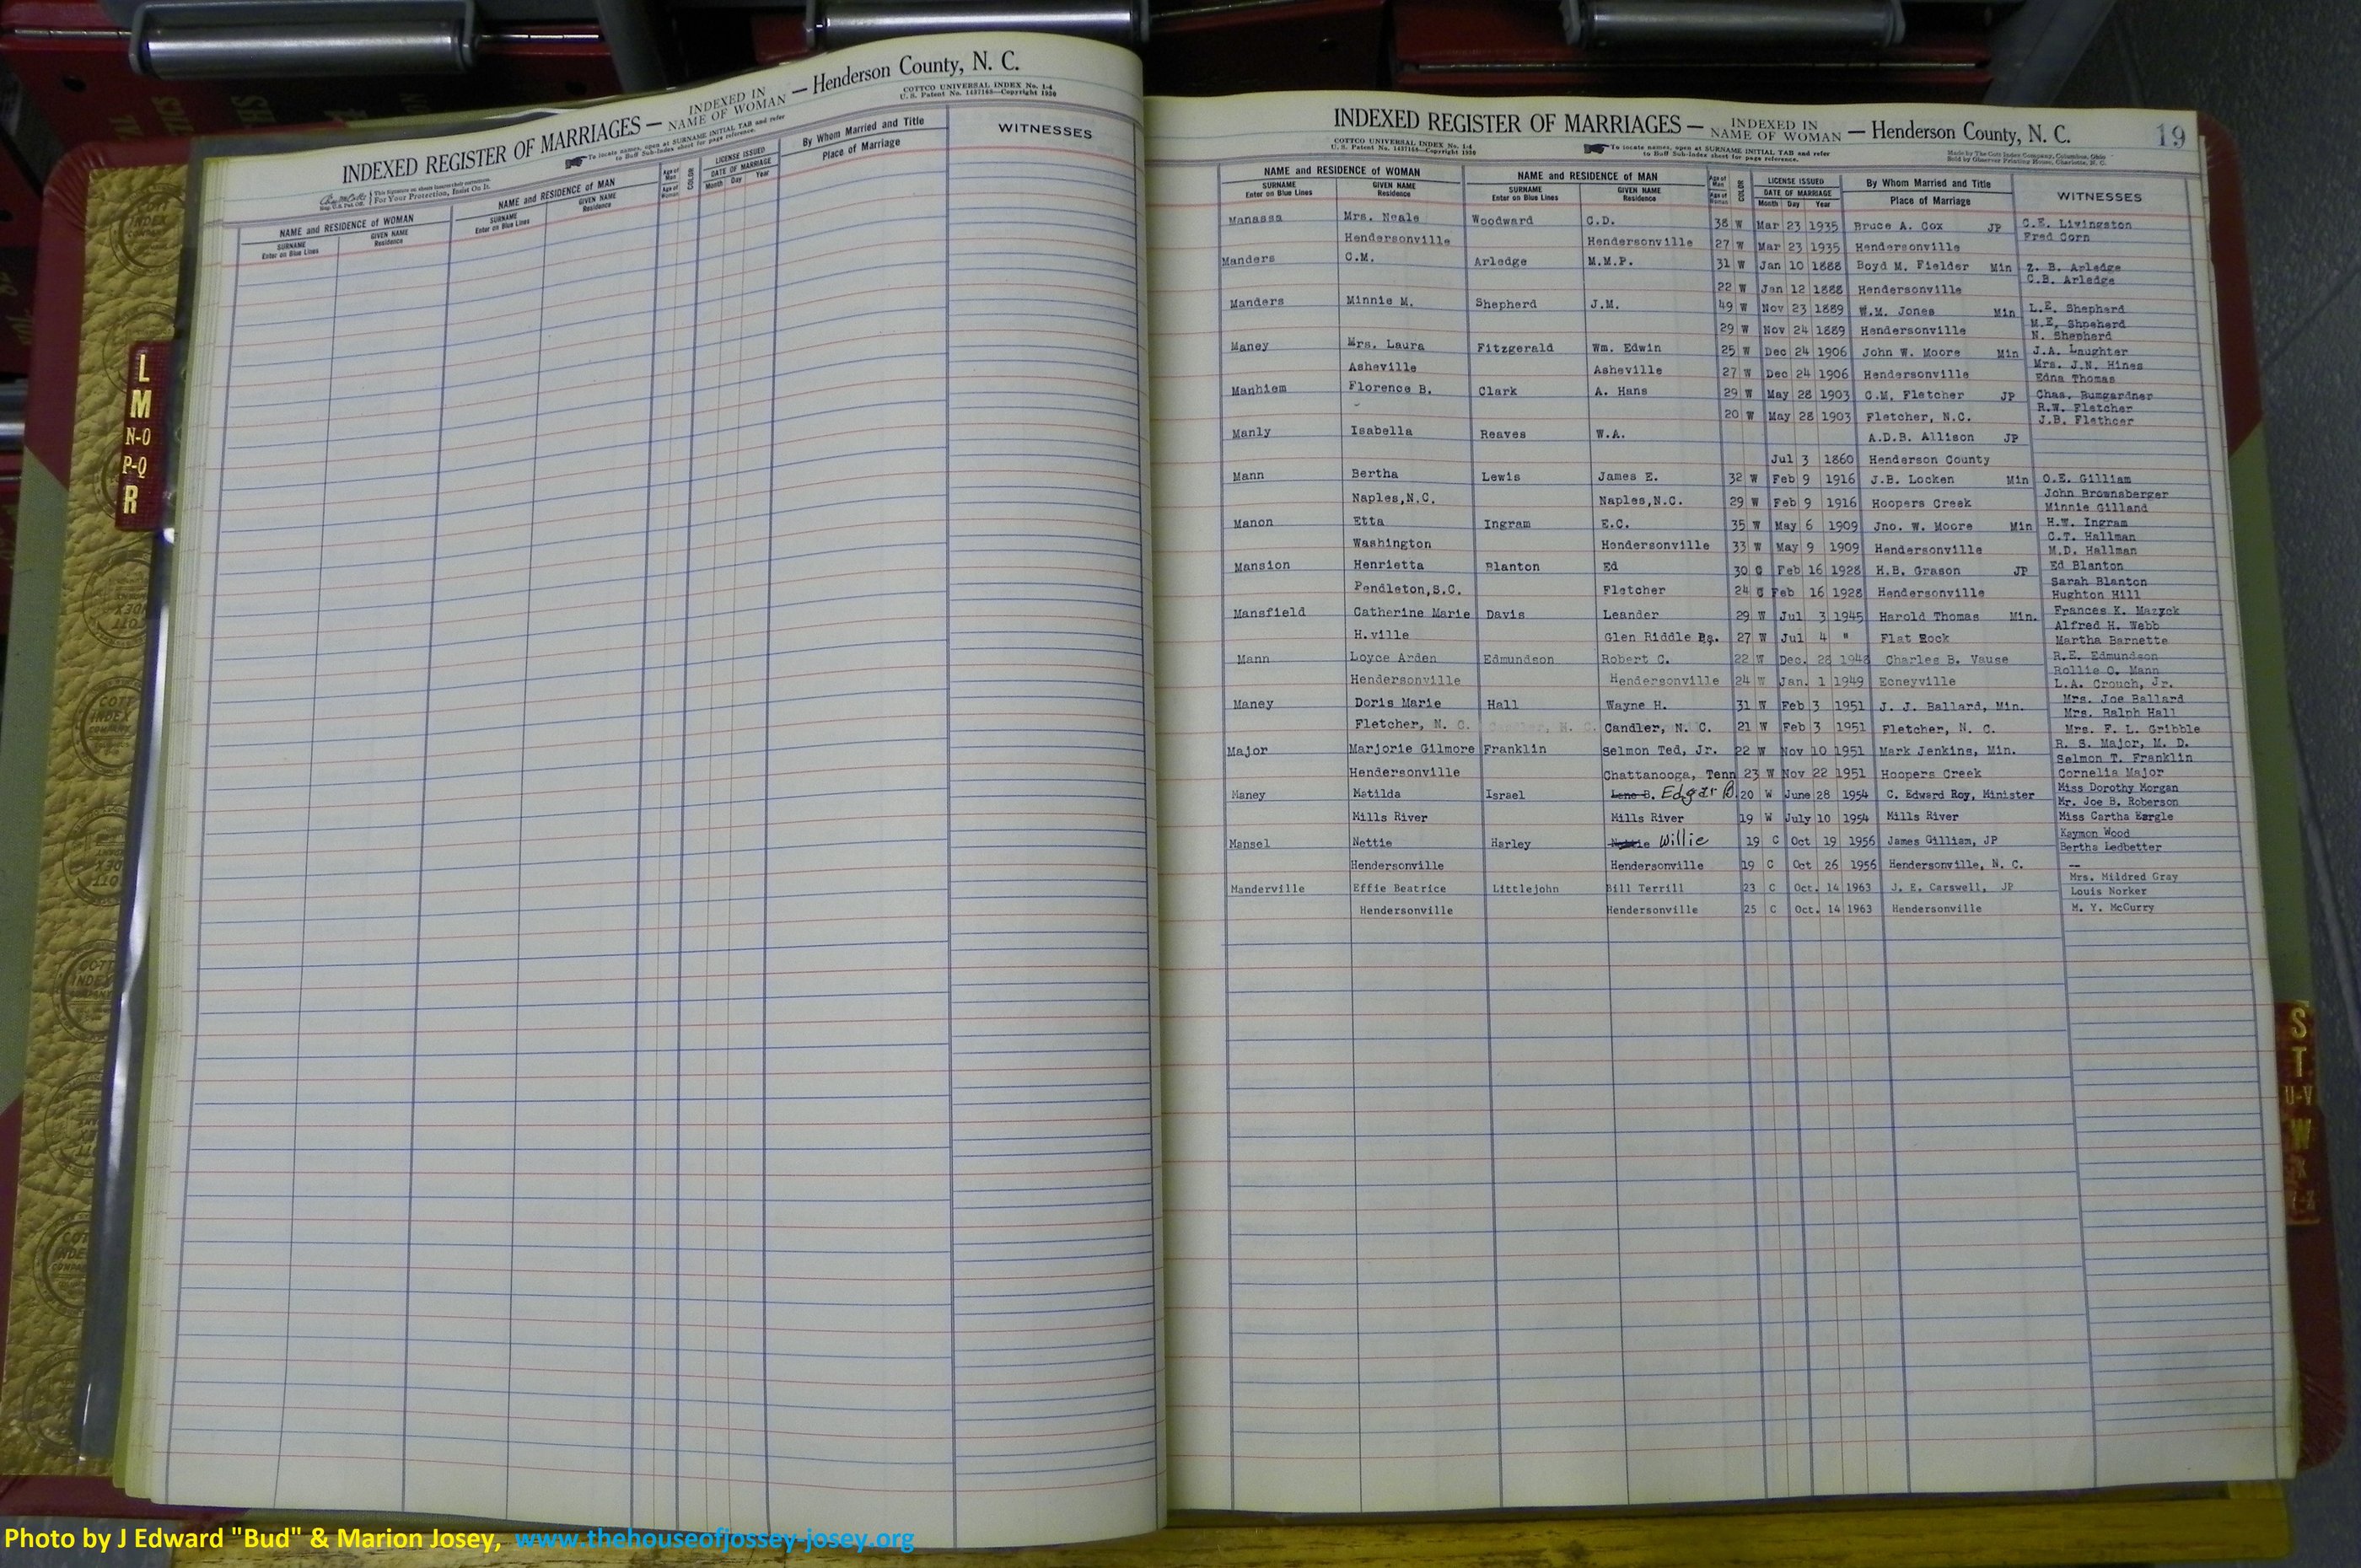 INDEXED REGISTER OF MARRIAGES — INDEXED IN NAME OF WOMAN — Henderson County, N. C.
COTTCO UNIVERSAL INDEX No. 1-4
U. S. Patent No. 1437168—Copyright 1930
To locate names, open at SURNAME INITIAL TAB and refer
to Buff Sub-Index sheet for page reference.
This Signature on sheets insures their correctness.
For Your Protection, Insist On It.
NAME and RESIDENCE of WOMAN NAME and RESIDENCE OF MAN Age of Man Age of Woman COLOR LICENSE ISSUED By Whom Married and Title WITNESSES
SURNAME GIVEN NAME SURNAME GIVEN NAME DATE OF MARRIAGE Place of Marriage
Enter on Blue Lines Residence Enter on Blue Lines Residence Month Day Year
L
M
N-O
P-Q
R
INDEXED REGISTER OF MARRIAGES — INDEXED IN NAME OF WOMAN — Henderson County, N. C. 19
COTTCO UNIVERSAL INDEX No. 1-4
U. S. Patent No. 1437168—Copyright 1930
To locate names, open at SURNAME INITIAL TAB and refer
to Buff Sub-Index sheet for page reference.
Made by The Cott Index Company, Columbus, Ohio
Sold by Observer Printing House, Charlotte, N. C.
NAME and RESIDENCE OF WOMAN NAME and RESIDENCE OF MAN Age of Man Age of Woman COLOR LICENSE ISSUED By Whom Married and Title WITNESSES
SURNAME GIVEN NAME SURNAME GIVEN NAME DATE OF MARRIAGE Place of Marriage
Enter on Blue Lines Residence Enter on Blue Lines Residence Month Day Year
Manassa Mrs. Neale Woodward C.D. 38 W Mar 23 1935 Bruce A. Cox JP C.E. Livingston
Fred Corn
Hendersonville Hendersonville 27 W Mar 23 1935 Hendersonville
Manders C.M. Arledge M.M.P. 31 W Jan 10 1888 Boyd M. Fielder Min Z. B. Arledge
C.B. Arledge
22 W Jan 12 1888 Hendersonville
Manders Minnie M. Shepherd J.M. 49 W Nov 23 1889 W.M. Jones Min L.E. Shepherd
M.E. Shpeherd
29 W Nov 24 1889 Hendersonville N. Shepherd
Maney Mrs. Laura Fitzgerald Wm. Edwin 25 W Dec 24 1906 John W. Moore Min J.A. Laughter
Mrs. J.N. Hines
Asheville Asheville 27 W Dec 24 1906 Hendersonville Edna Thomas
Manhiem Florence B. Clark A. Hans 29 W May 28 1903 C.M. Fletcher JP Chas. Bumgardner
R.W. Fletcher
20 W May 28 1903 Fletcher, N.C. J.B. Flethcer
Manly Isabella Reaves W.A. A.D.B. Allison JP
Jul 3 1860 Henderson County
Mann Bertha Lewis James E. 32 W Feb 9 1916 J.B. Locken Min O.E. Gilliam
John Brownsberger
Naples,N.C. Naples,N.C. 29 W Feb 9 1916 Hoopers Creek Minnie Gilland
Manon Etta Ingram E.C. 35 W May 6 1909 Jno. W. Moore Min H.W. Ingram
C.T. Hallman
Washington Hendersonville 33 W May 9 1909 Hendersonville M.D. Hallman
Mansion Henrietta Blanton Ed 30 C Feb 16 1928 H.B. Grason JP Ed Blanton
Sarah Blanton
Pendleton,S.C. Fletcher 24 C Feb 16 1928 Hendersonville Hughton Hill
Mansfield Catherine Marie Davis Leander 29 W Jul 3 1945 Harold Thomas Min. Frances K. Mazyck
Alfred H. Webb
H.ville Glen Riddle Pa. 27 W Jul 4 " Flat Rock Martha Barnette
Mann Loyce Arden Edmundson Robert C. 22 W Dec. 28 1948 Charles B. Vause R.E. Edmundson
Rollie O. Mann
Hendersonville Hendersonville 24 W Jan. 1 1949 Edneyville L.A. Crouch, Jr.
Maney Doris Marie Hall Wayne H. 31 W Feb 3 1951 J. J. Ballard, Min. Mrs. Joe Ballard
Mrs. Ralph Hall
Fletcher, N. C. Candler, N. C. Candler, N. C. 21 W Feb 3 1951 Fletcher, N. C. Mrs. F. L. Gribble
Major Marjorie Gilmore Franklin Selmon Ted, Jr. 22 W Nov 10 1951 Mark Jenkins, Min. R. S. Major, M. D.
Selmon T. Franklin
Hendersonville Chattanooga, Tenn 23 W Nov 22 1951 Hoopers Creek Cornelia Major
Maney Matilda Israel Lane B. Edgar B. 20 W June 28 1954 C. Edward Roy, Minister Miss Dorothy Morgan
Mr. Joe B. Roberson
Mills River Mills River 19 W July 10 1954 Mills River Miss Cartha Eargle
Mansel Nettie Harley Nettie Willie 19 C Oct 19 1956 James Gilliam, JP Kaymon Wood
Bertha Ledbetter
Hendersonville Hendersonville 19 C Oct 26 1956 Hendersonville, N. C. --
Manderville Effie Beatrice Littlejohn Bill Terrill 23 C Oct. 14 1963 J. E. Carswell, JP Mrs. Mildred Gray
Louis Norker
Hendersonville Hendersonville 25 C Oct. 14 1963 Hendersonville M. Y. McCurry
S
T
U-V
W
Photo by J Edward "Bud" & Marion Josey, www.thehouseofjossey-josey.org